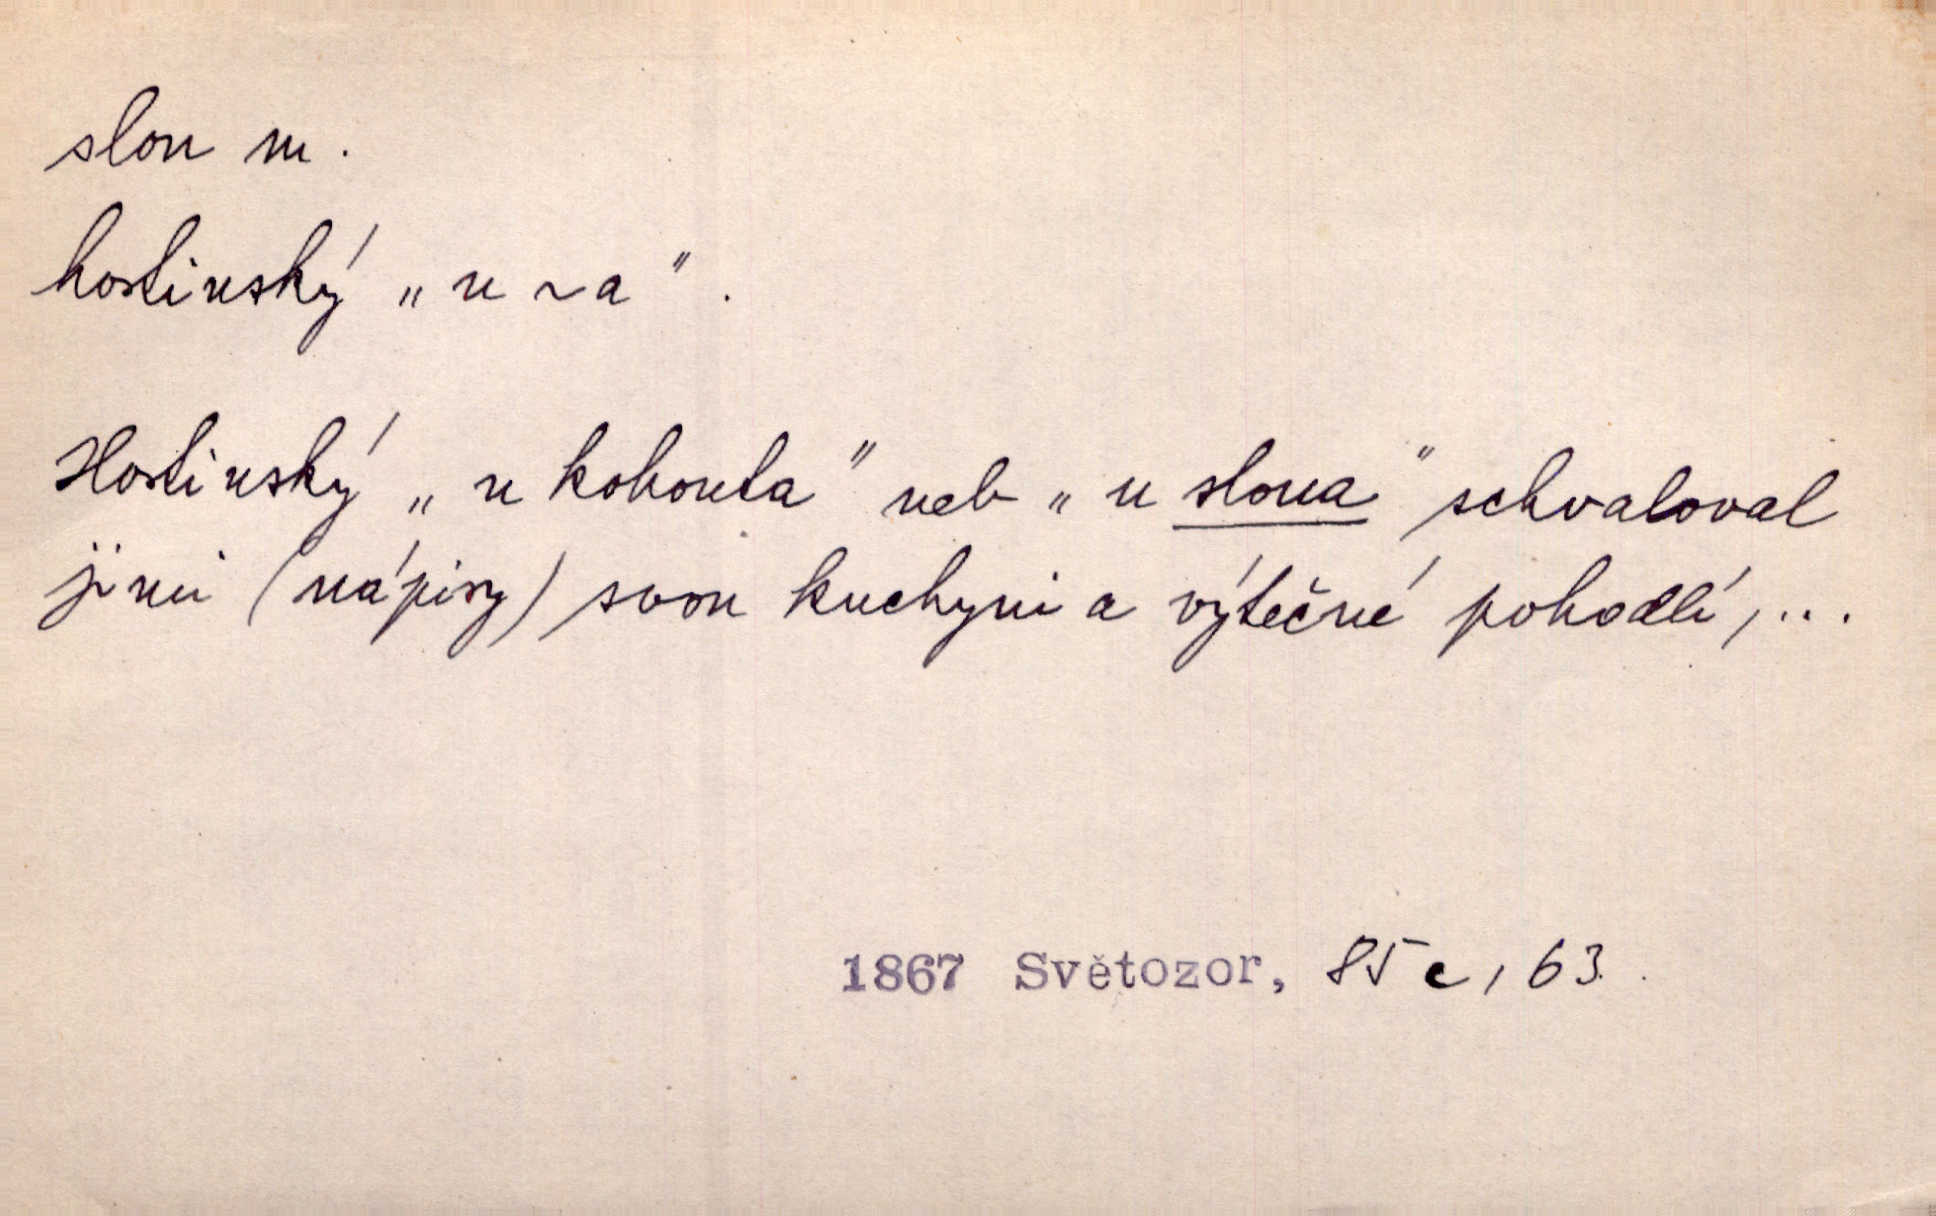 slon m.
hostinský „u ~a".
Hostinský „u kohouta" neb „u slona" schvaloval
jimi (nápisy) svou kuchyni a výtečné pohodlí,...
1867 Světozor, 85 c, 63.